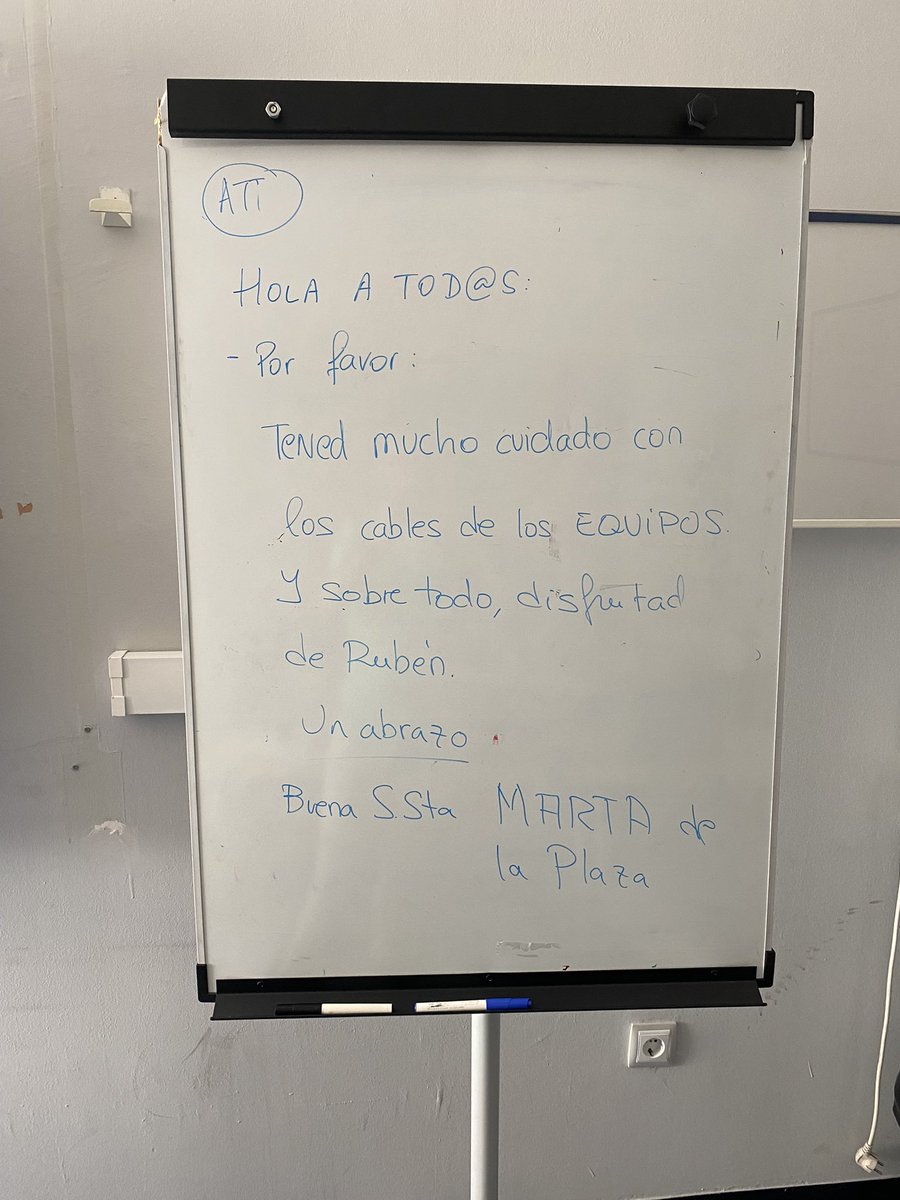 ATi
HOLA A TOD@S:
- Por favor:
Tened mucho cuidado con
los cables de los EQUIPOS.
Y sobre todo, disfrutad
de Rubén.
Un abrazo
Buena S.Sta MARTA de
la Plaza